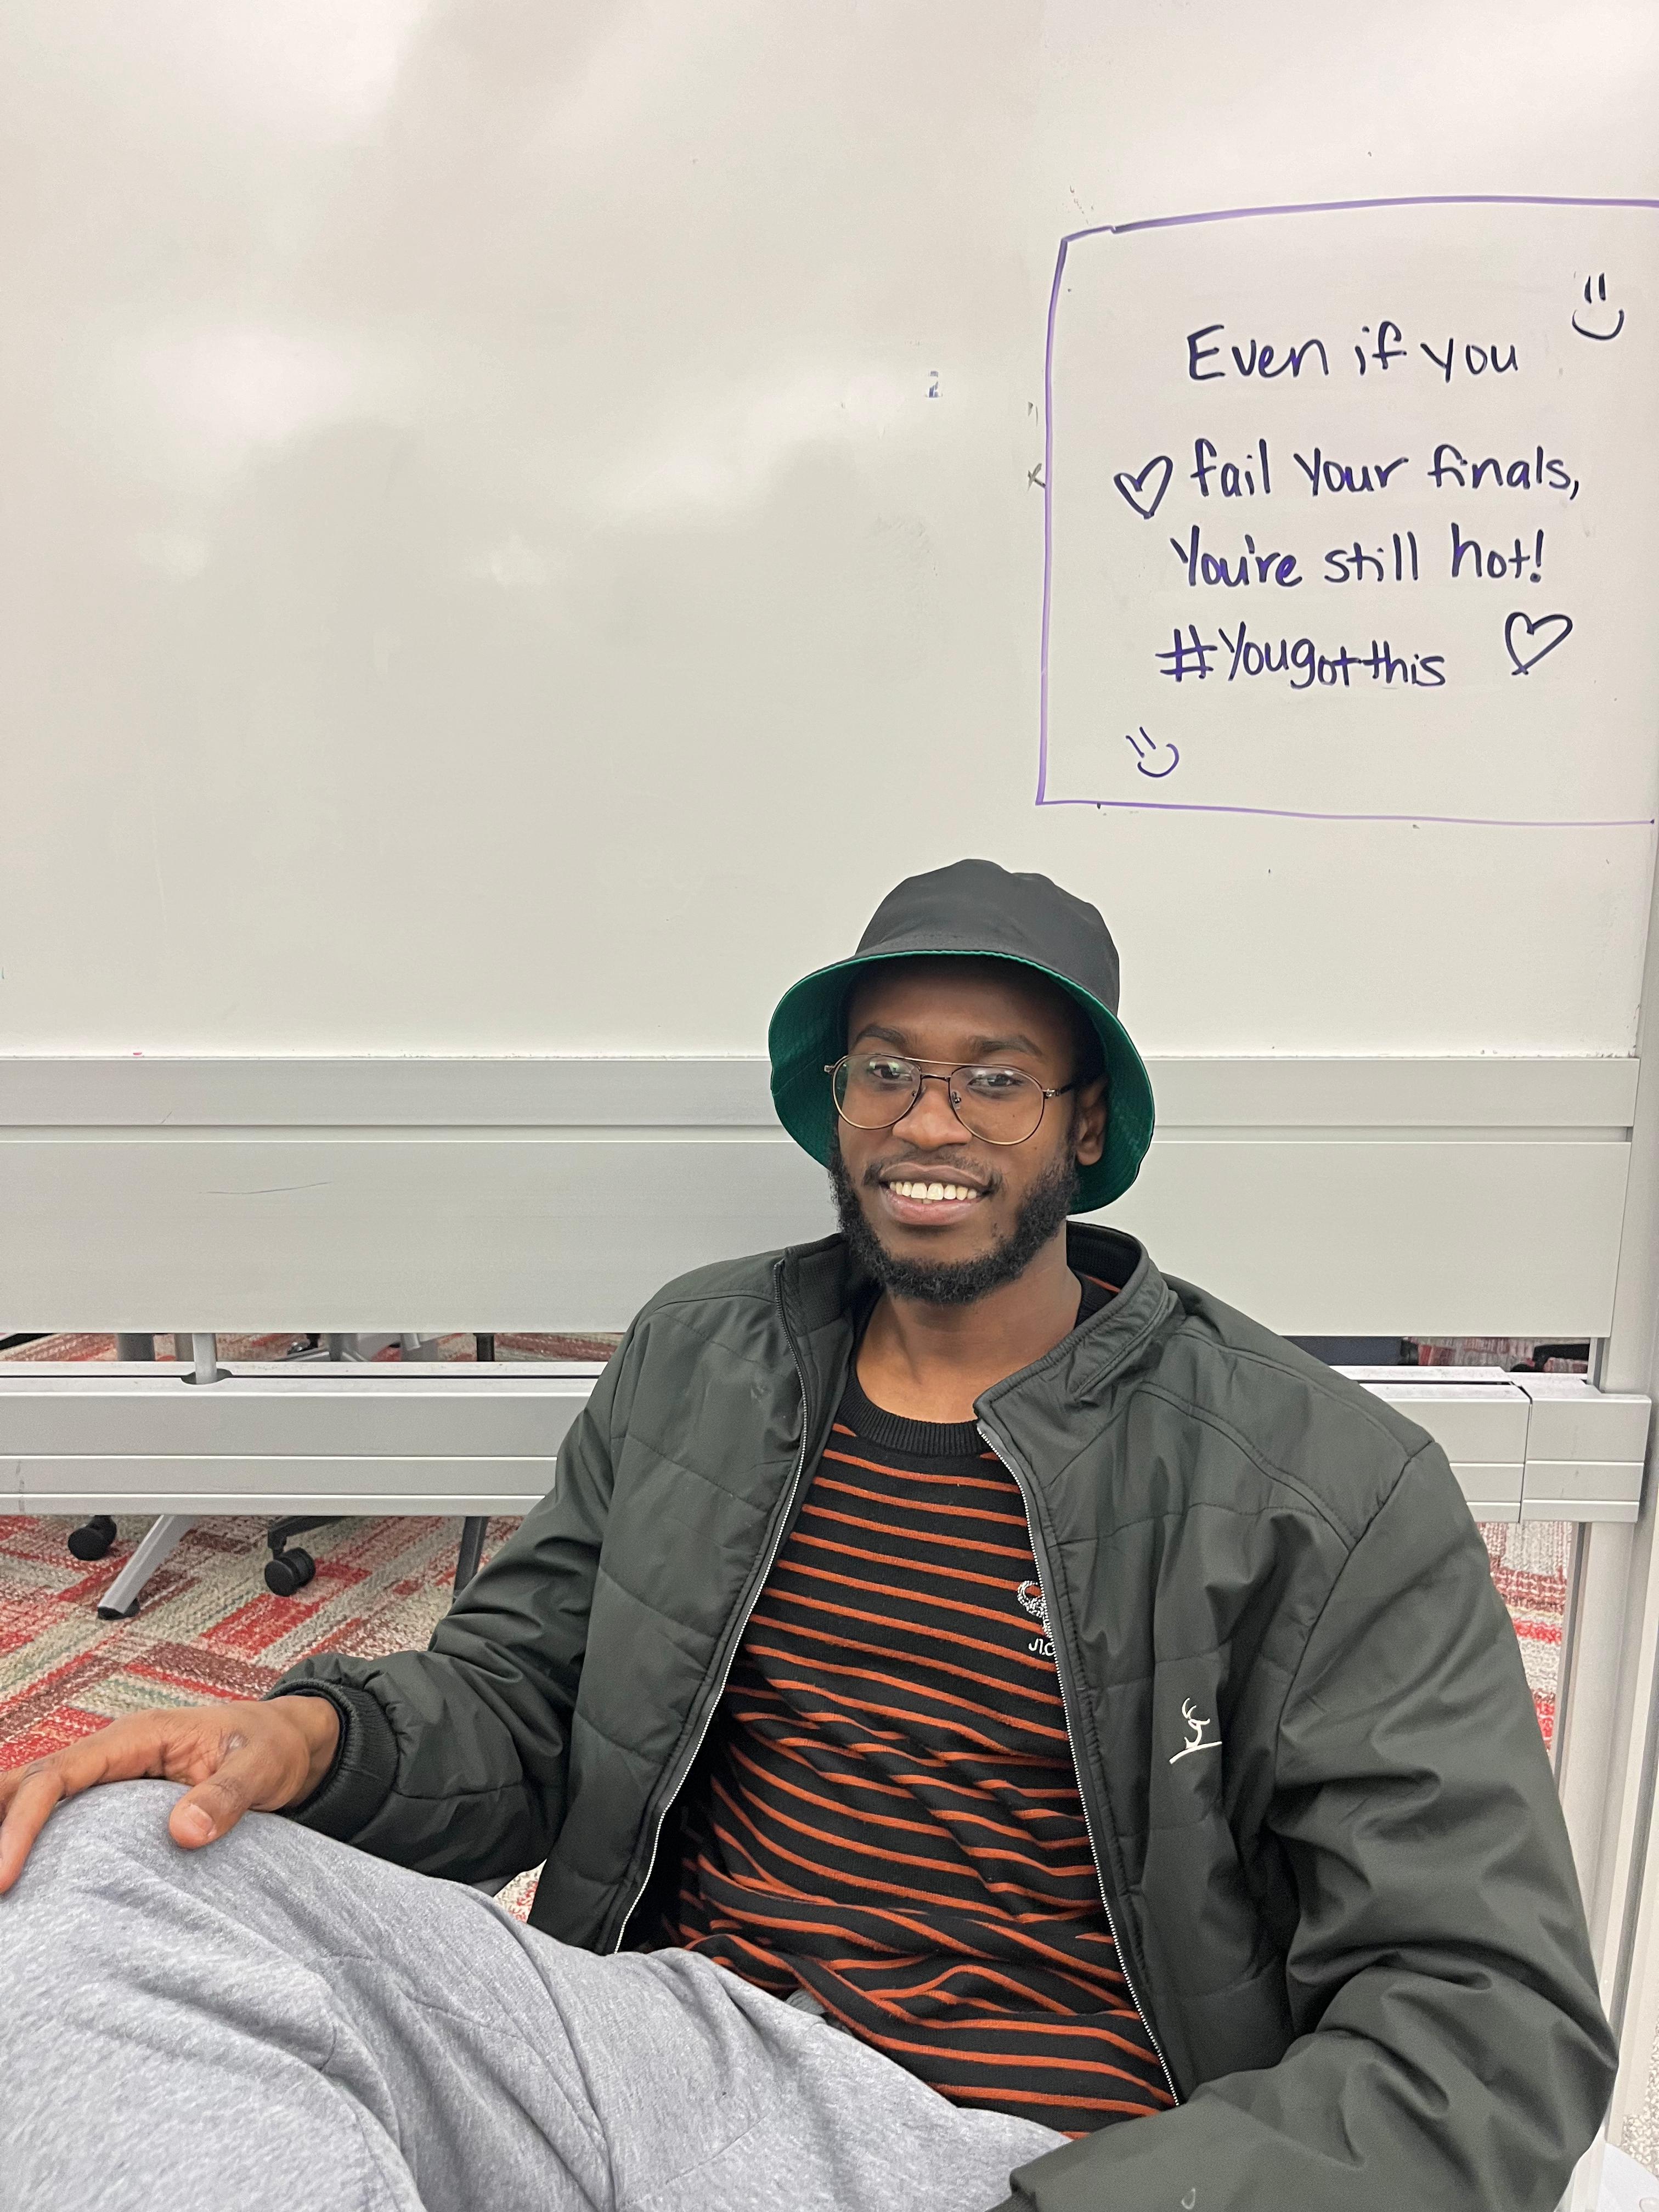 Even if you
fail your finals,
You're still hot!
#Yougotthis